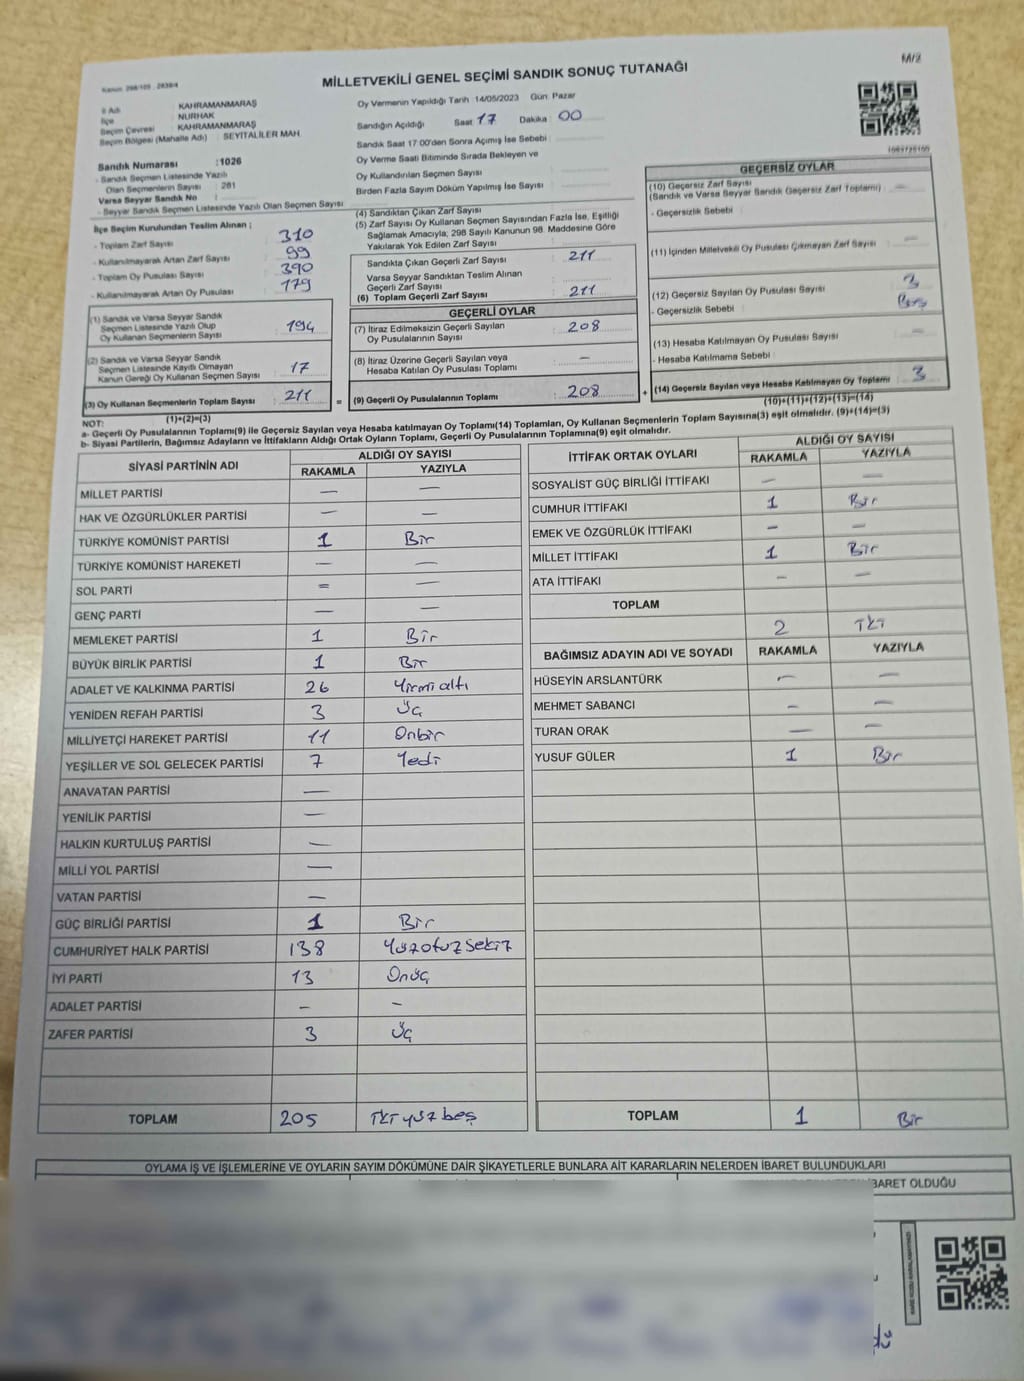 M/2
MİLLETVEKİLİ GENEL SEÇİMİ SANDIK SONUÇ TUTANAĞI
İl Adı : KAHRAMANMARAŞ
İlçe : NURHAK
Seçim Çevresi : KAHRAMANMARAŞ
Seçim Bölgesi (Mahalle Adı) : SEYİTALİLER MAH.
Sandık Numarası :1026
- Sandık Seçmen Listesinde Yazılı
Olan Seçmenlerin Sayısı : 261
Varsa Seyyar Sandık No :
- Seyyar Sandık Seçmen Listesinde Yazılı Olan Seçmen Sayısı :
Oy Vermenin Yapıldığı Tarih :14/05/2023 Gün: Pazar
Sandığın Açıldığı Saat : 17 Dakika : 00
Sandık Saat 17:00'den Sonra Açılmış İse Sebebi :
Oy Verme Saati Bitiminde Sırada Bekleyen ve
Oy Kullandırılan Seçmen Sayısı :
Birden Fazla Sayım Döküm Yapılmış İse Sayısı :
İlçe Seçim Kurulundan Teslim Alınan ;
- Toplam Zarf Sayısı : 310
- Kullanılmayarak Artan Zarf Sayısı : 99
- Toplam Oy Pusulası Sayısı : 390
- Kullanılmayarak Artan Oy Pusulası : 179
(1) Sandık ve Varsa Seyyar Sandık
Seçmen Listesinde Yazılı Olup
Oy Kullanan Seçmenlerin Sayısı : 194
(2) Sandık ve Varsa Seyyar Sandık
Seçmen Listesinde Kayıtlı Olmayan
Kanun Gereği Oy Kullanan Seçmen Sayısı : 17
(3) Oy Kullanan Seçmenlerin Toplam Sayısı : 211
(1)+(2)=(3)
(4) Sandıktan Çıkan Zarf Sayısı :
(5) Zarf Sayısı Oy Kullanan Seçmen Sayısından Fazla İse, Eşitliği
Sağlamak Amacıyla, 298 Sayılı Kanunun 98. Maddesine Göre
Yakılarak Yok Edilen Zarf Sayısı :
Sandıkta Çıkan Geçerli Zarf Sayısı : 211
Varsa Seyyar Sandıktan Teslim Alınan
Geçerli Zarf Sayısı :
(6) Toplam Geçerli Zarf Sayısı : 211
GEÇERLİ OYLAR
(7) İtiraz Edilmeksizin Geçerli Sayılan
Oy Pusulalarının Sayısı : 208
(8) İtiraz Üzerine Geçerli Sayılan veya
Hesaba Katılan Oy Pusulası Toplamı : —
= (9) Geçerli Oy Pusulalarının Toplamı : 208 +
GEÇERSİZ OYLAR
(10) Geçersiz Zarf Sayısı
(Sandık ve Varsa Seyyar Sandık Geçersiz Zarf Toplamı) : —
- Geçersizlik Sebebi :
(11) İçinden Milletvekili Oy Pusulası Çıkmayan Zarf Sayısı : —
(12) Geçersiz Sayılan Oy Pusulası Sayısı : 3
- Geçersizlik Sebebi :
(13) Hesaba Katılmayan Oy Pusulası Sayısı : —
- Hesaba Katılmama Sebebi :
(14) Geçersiz Sayılan veya Hesaba Katılmayan Oy Toplamı : 3
(10)+(11)+(12)+(13)=(14)
NOT:
a- Geçerli Oy Pusulalarının Toplamı(9) ile Geçersiz Sayılan veya Hesaba katılmayan Oy Toplamı(14) Toplamları, Oy Kullanan Seçmenlerin Toplam Sayısına(3) eşit olmalıdır. (9)+(14)=(3)
b- Siyasi Partilerin, Bağımsız Adayların ve İttifakların Aldığı Ortak Oyların Toplamı, Geçerli Oy Pusulalarının Toplamına(9) eşit olmalıdır.
SİYASİ PARTİNİN ADI ALDIĞI OY SAYISI
RAKAMLA YAZIYLA
MİLLET PARTİSİ — —
HAK VE ÖZGÜRLÜKLER PARTİSİ — —
TÜRKİYE KOMÜNİST PARTİSİ 1 Bir
TÜRKİYE KOMÜNİST HAREKETİ — —
SOL PARTİ = —
GENÇ PARTİ — —
MEMLEKET PARTİSİ 1 Bir
BÜYÜK BİRLİK PARTİSİ 1 Bir
ADALET VE KALKINMA PARTİSİ 26 Yirmi altı
YENİDEN REFAH PARTİSİ 3 Üç
MİLLİYETÇİ HAREKET PARTİSİ 11 Onbir
YEŞİLLER VE SOL GELECEK PARTİSİ 7 Yedi
ANAVATAN PARTİSİ —
YENİLİK PARTİSİ —
HALKIN KURTULUŞ PARTİSİ —
MİLLİ YOL PARTİSİ —
VATAN PARTİSİ —
GÜÇ BİRLİĞİ PARTİSİ 1 Bir
CUMHURİYET HALK PARTİSİ 138 Yüzotuzsekiz
İYİ PARTİ 13 Onüç
ADALET PARTİSİ – –
ZAFER PARTİSİ 3 Üç
TOPLAM 205 İki yüz beş
İTTİFAK ORTAK OYLARI ALDIĞI OY SAYISI
RAKAMLA YAZIYLA
SOSYALİST GÜÇ BİRLİĞİ İTTİFAKI — —
CUMHUR İTTİFAKI 1 Bir
EMEK VE ÖZGÜRLÜK İTTİFAKI — —
MİLLET İTTİFAKI 1 Bir
ATA İTTİFAKI — —
TOPLAM
2 İki
BAĞIMSIZ ADAYIN ADI VE SOYADI RAKAMLA YAZIYLA
HÜSEYİN ARSLANTÜRK — —
MEHMET SABANCI — —
TURAN ORAK — —
YUSUF GÜLER 1 Bir
TOPLAM 1 Bir
OYLAMA İŞ VE İŞLEMLERİNE VE OYLARIN SAYIM DÖKÜMÜNE DAİR ŞİKAYETLERLE BUNLARA AİT KARARLARIN NELERDEN İBARET BULUNDUKLARI
İBARET OLDUĞU